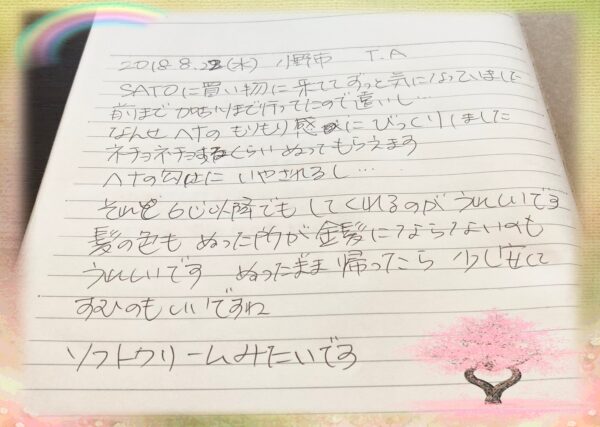 2018 8.22(水) 小野市 T.A
SATOに買い物に来ててずっと気になっていました
前まで加古川まで行ってたので遠いし…
なんせヘナのもりもり感にびっくりしました
ネチョネチョするくらいぬってもらえます
ヘナの匂いにいやされるし…
それと6じ以降でもしてくれるのがうれしいです
髪の色もぬった所が金髪にならないのも
うれしいです ぬったまま帰ったら少し安くて
すむのもいいですね
ソフトクリームみたいです